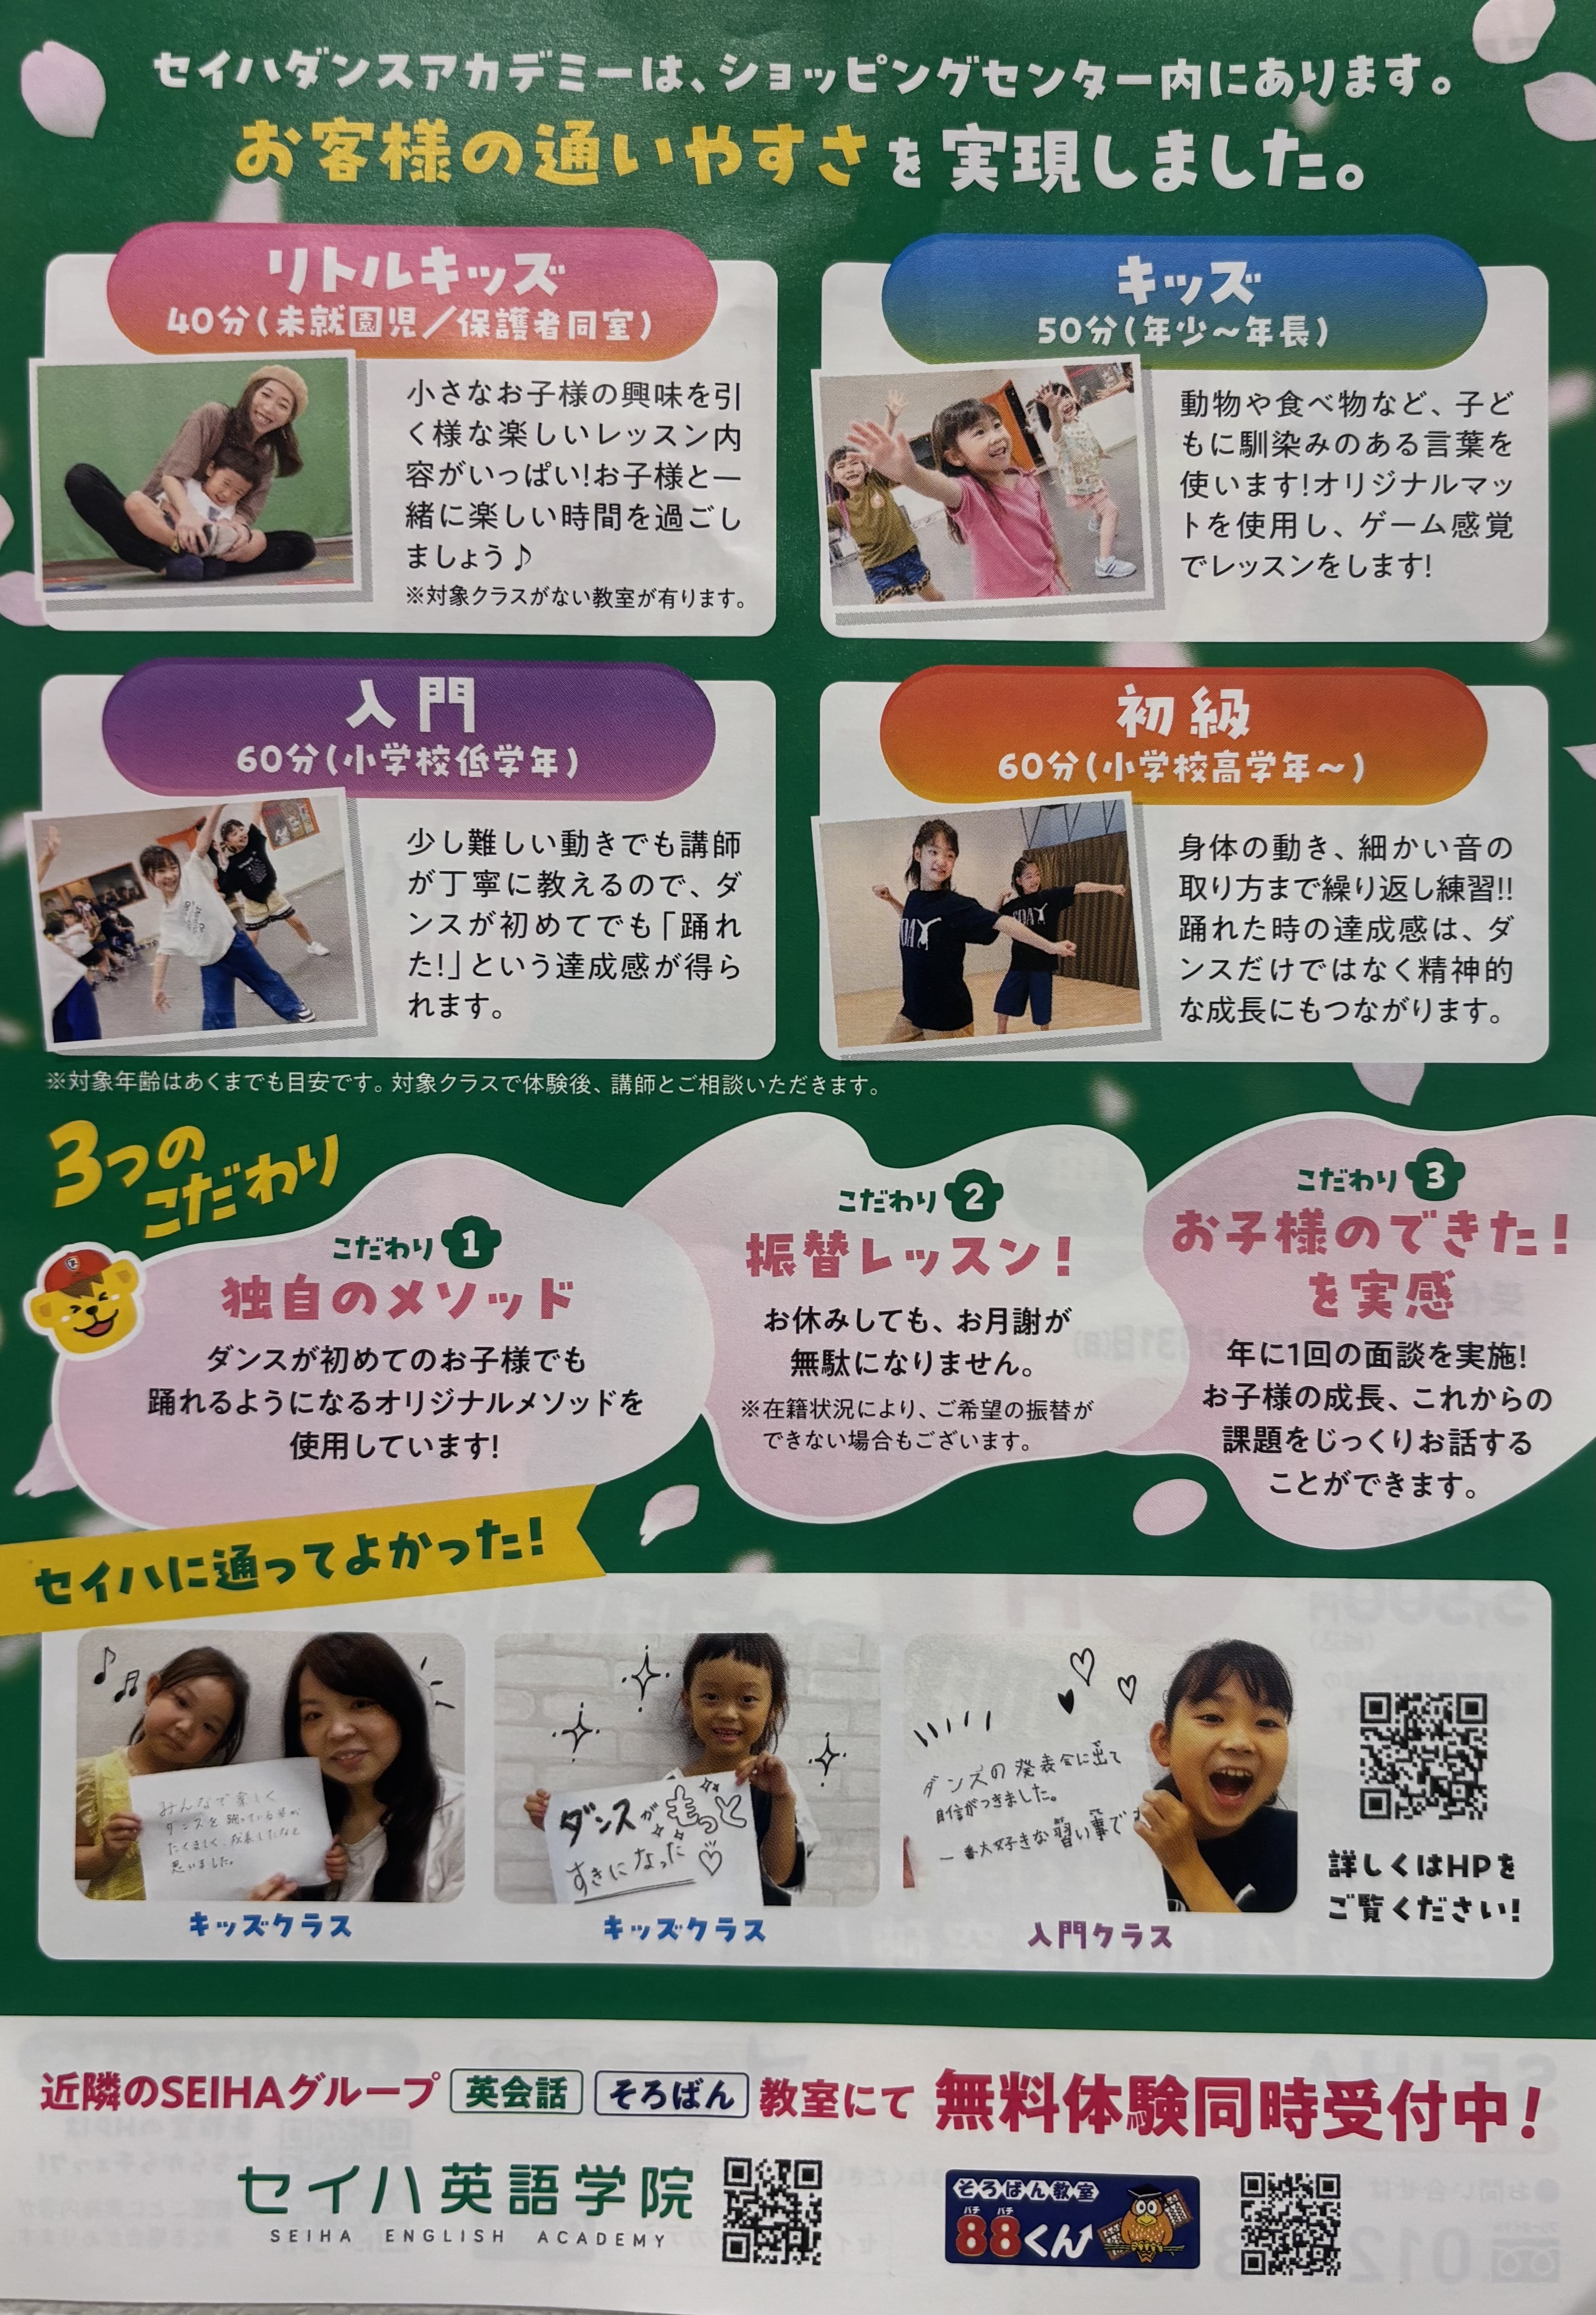 セイハダンスアカデミーは、ショッピングセンター内にあります。
お客様の通いやすさを実現しました。
リトルキッズ
40分(未就園児／保護者同室)
小さなお子様の興味を引
く様な楽しいレッスン内
容がいっぱい!お子様と一
緒に楽しい時間を過ごし
ましょう♪
※対象クラスがない教室が有ります。
キッズ
50分(年少〜年長)
動物や食べ物など、子ど
もに馴染みのある言葉を
使います!オリジナルマッ
トを使用し、ゲーム感覚
でレッスンをします!
入門
60分(小学校低学年)
少し難しい動きでも講師
が丁寧に教えるので、ダ
ンスが初めてでも「踊れ
た!」という達成感が得ら
れます。
初級
60分(小学校高学年〜)
身体の動き、細かい音の
取り方まで繰り返し練習!!
踊れた時の達成感は、ダ
ンスだけではなく精神的
な成長にもつながります。
※対象年齢はあくまでも目安です。対象クラスで体験後、講師とご相談いただきます。
3つの
こだわり
こだわり 1
独自のメソッド
ダンスが初めてのお子様でも
踊れるようになるオリジナルメソッドを
使用しています!
こだわり 2
振替レッスン!
お休みしても、お月謝が
無駄になりません。
※在籍状況により、ご希望の振替が
できない場合もございます。
こだわり 3
お子様のできた!
を実感
年に1回の面談を実施!
お子様の成長、これからの
課題をじっくりお話する
ことができます。
セイハに通ってよかった!
みんなで楽しく
ダンスを踊っている姿が
たくましく、成長したなと
思いました。
キッズクラス
ダンスがもっと
すきになった♡
キッズクラス
ダンスの発表会に出て
自信がつきました。
一番大好きな習い事で
入門クラス
詳しくはHPを
ご覧ください!
近隣のSEIHAグループ 英会話 そろばん 教室にて 無料体験同時受付中!
セイハ英語学院
SEIHA ENGLISH ACADEMY
そろばん教室
パチ パチ
88くん